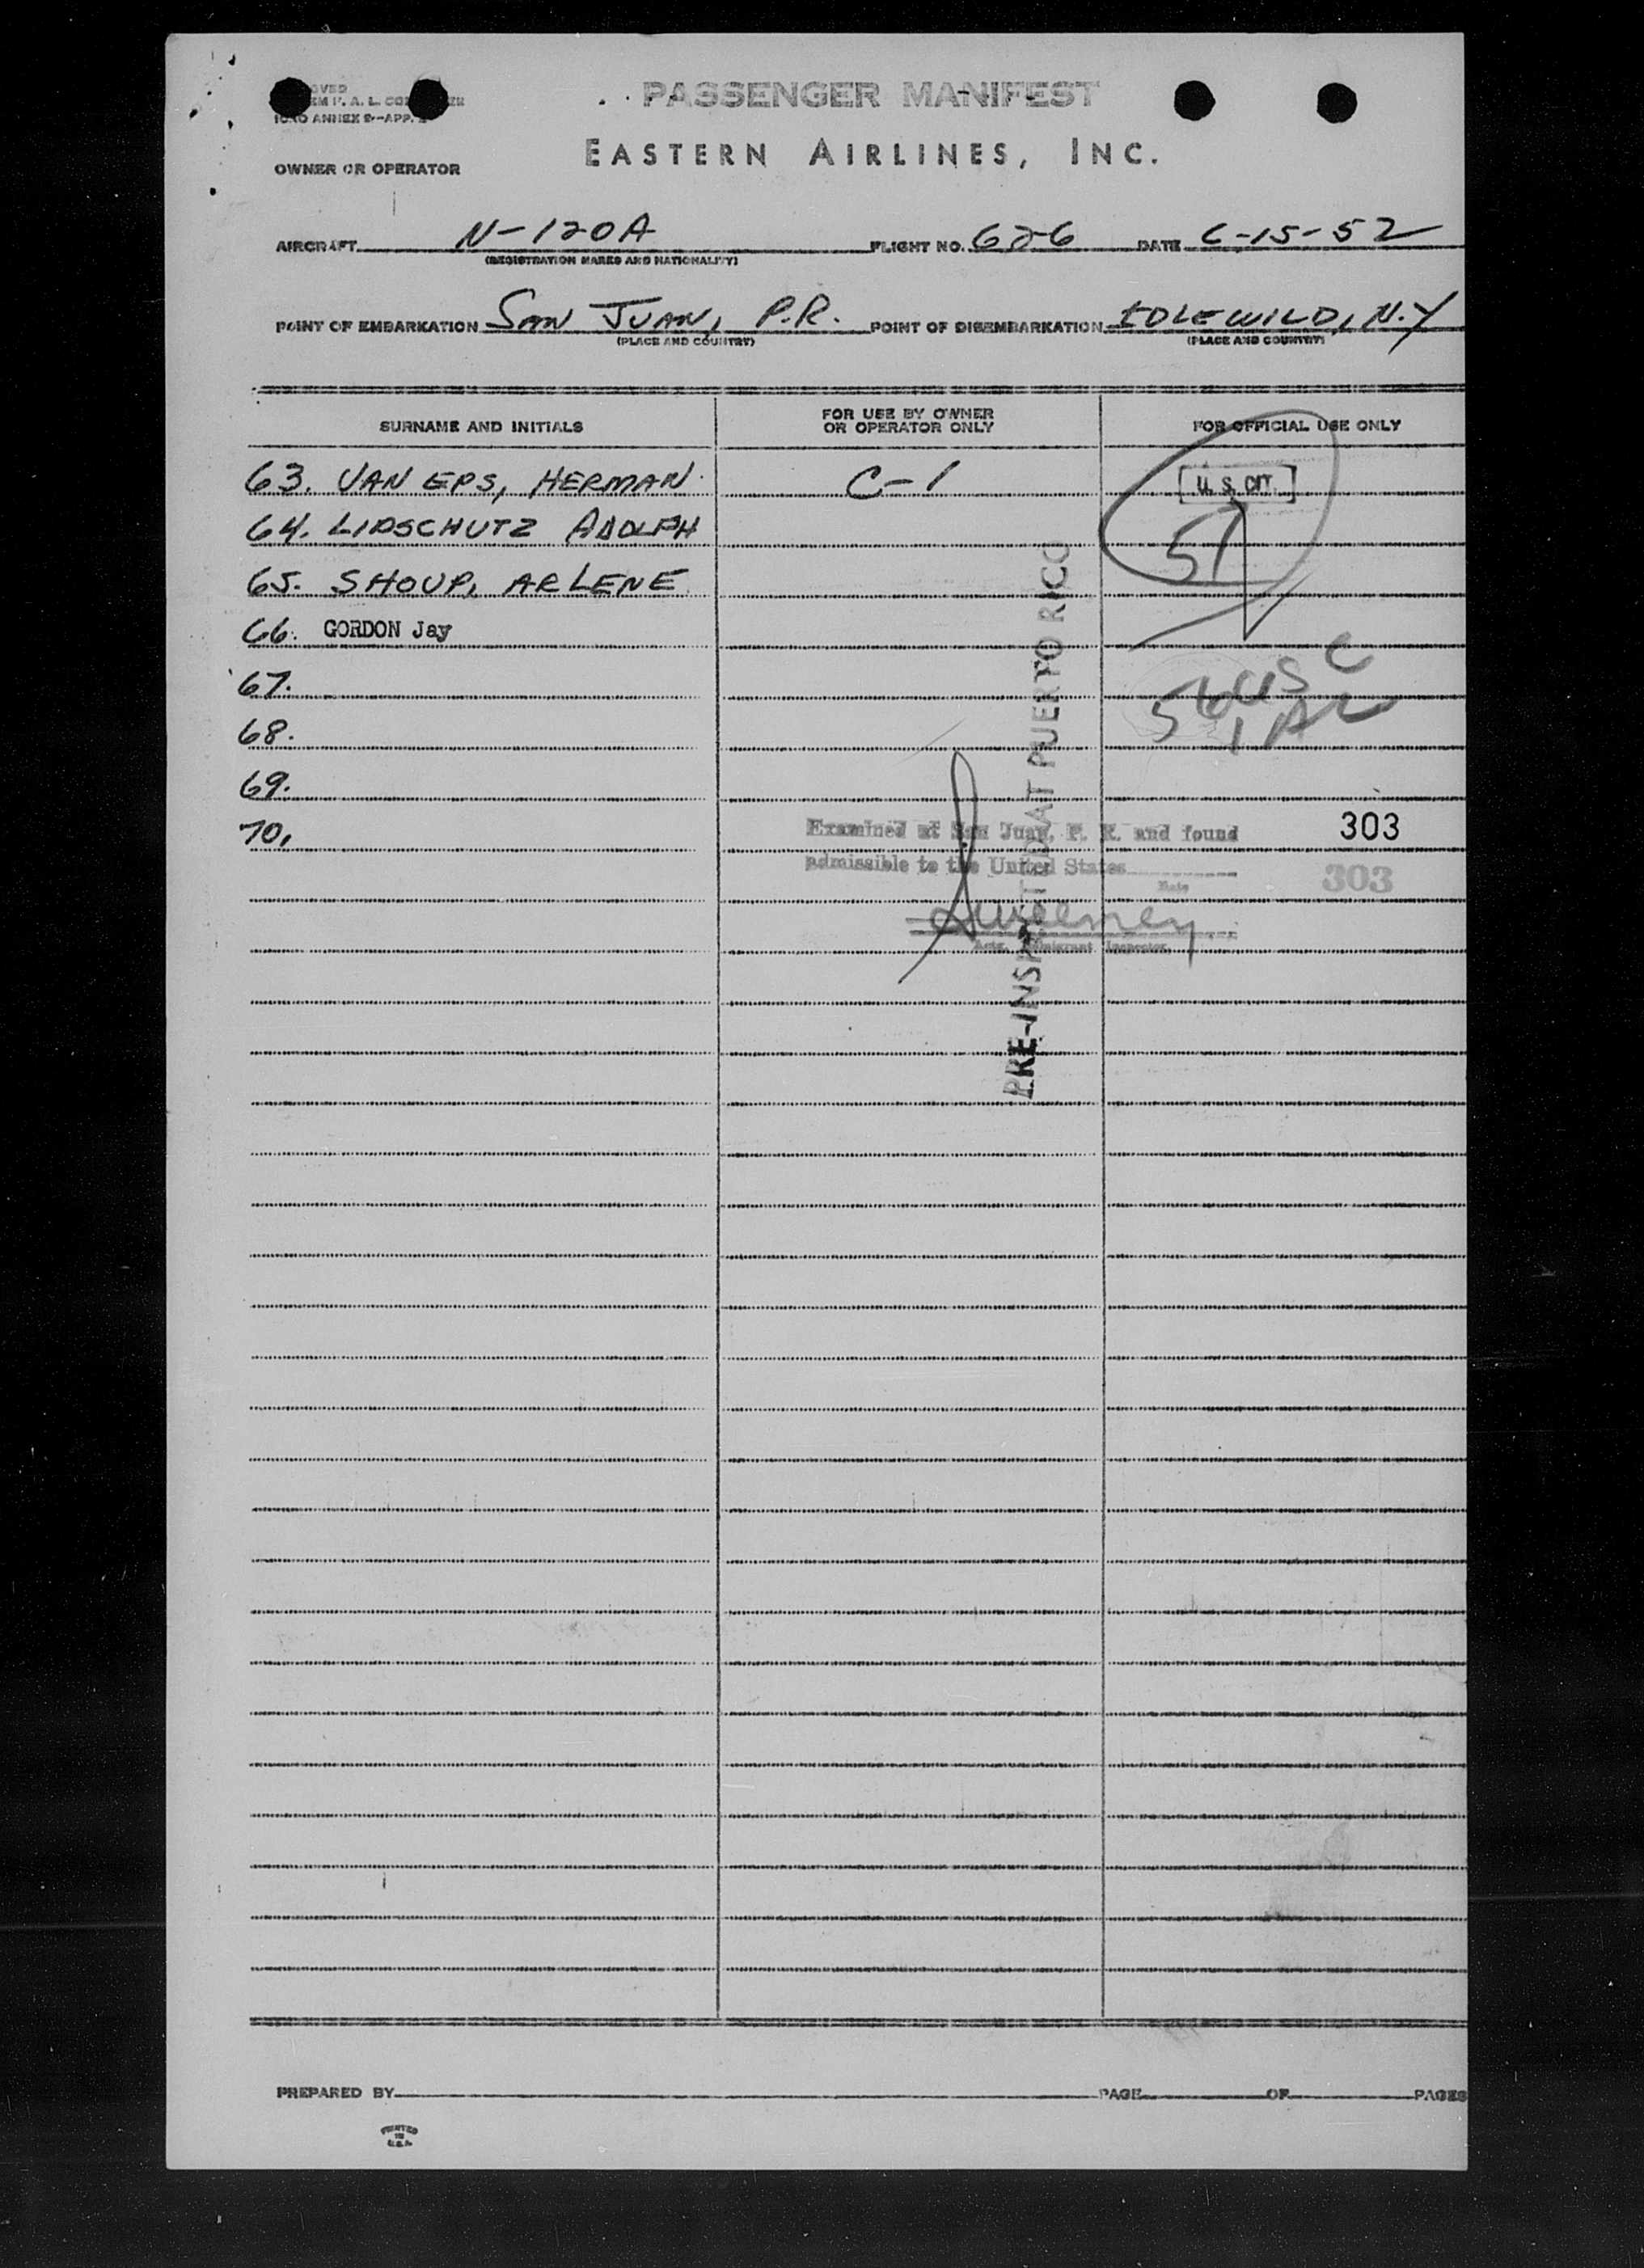 PASSENGER MANIFEST
ICAO ANNEX 9-APP.
EASTERN AIRLINES, INC.
OWNER OR OPERATOR
AIRCRAFT N-120A FLIGHT NO. 626 DATE 6-15-52
(REGISTRATION MARKS AND NATIONALITY)
POINT OF EMBARKATION SAN JUAN, P.R. POINT OF DISEMBARKATION IDLEWILD, N.Y
(PLACE AND COUNTRY) (PLACE AND COUNTRY)
SURNAME AND INITIALS FOR USE BY OWNER OR OPERATOR ONLY FOR OFFICIAL USE ONLY
63. VAN EPS, HERMAN C-1 U. S. CIT.
64. LIPSCHUTZ ADOLPH 51
65. SHOUP, ARLENE
66. GORDON Jay
67.
68.
69.
70.
56 USC
1 AL
PRE-INSPECTED AT PUERTO RICO
Examined at San Juan, P. R. and found 303
admissible to the United States 303
Date
Sweeney
Actg. Immigrant Inspector
PREPARED BY PAGE OF PAGES
PRINTED
IN
U.S.A.